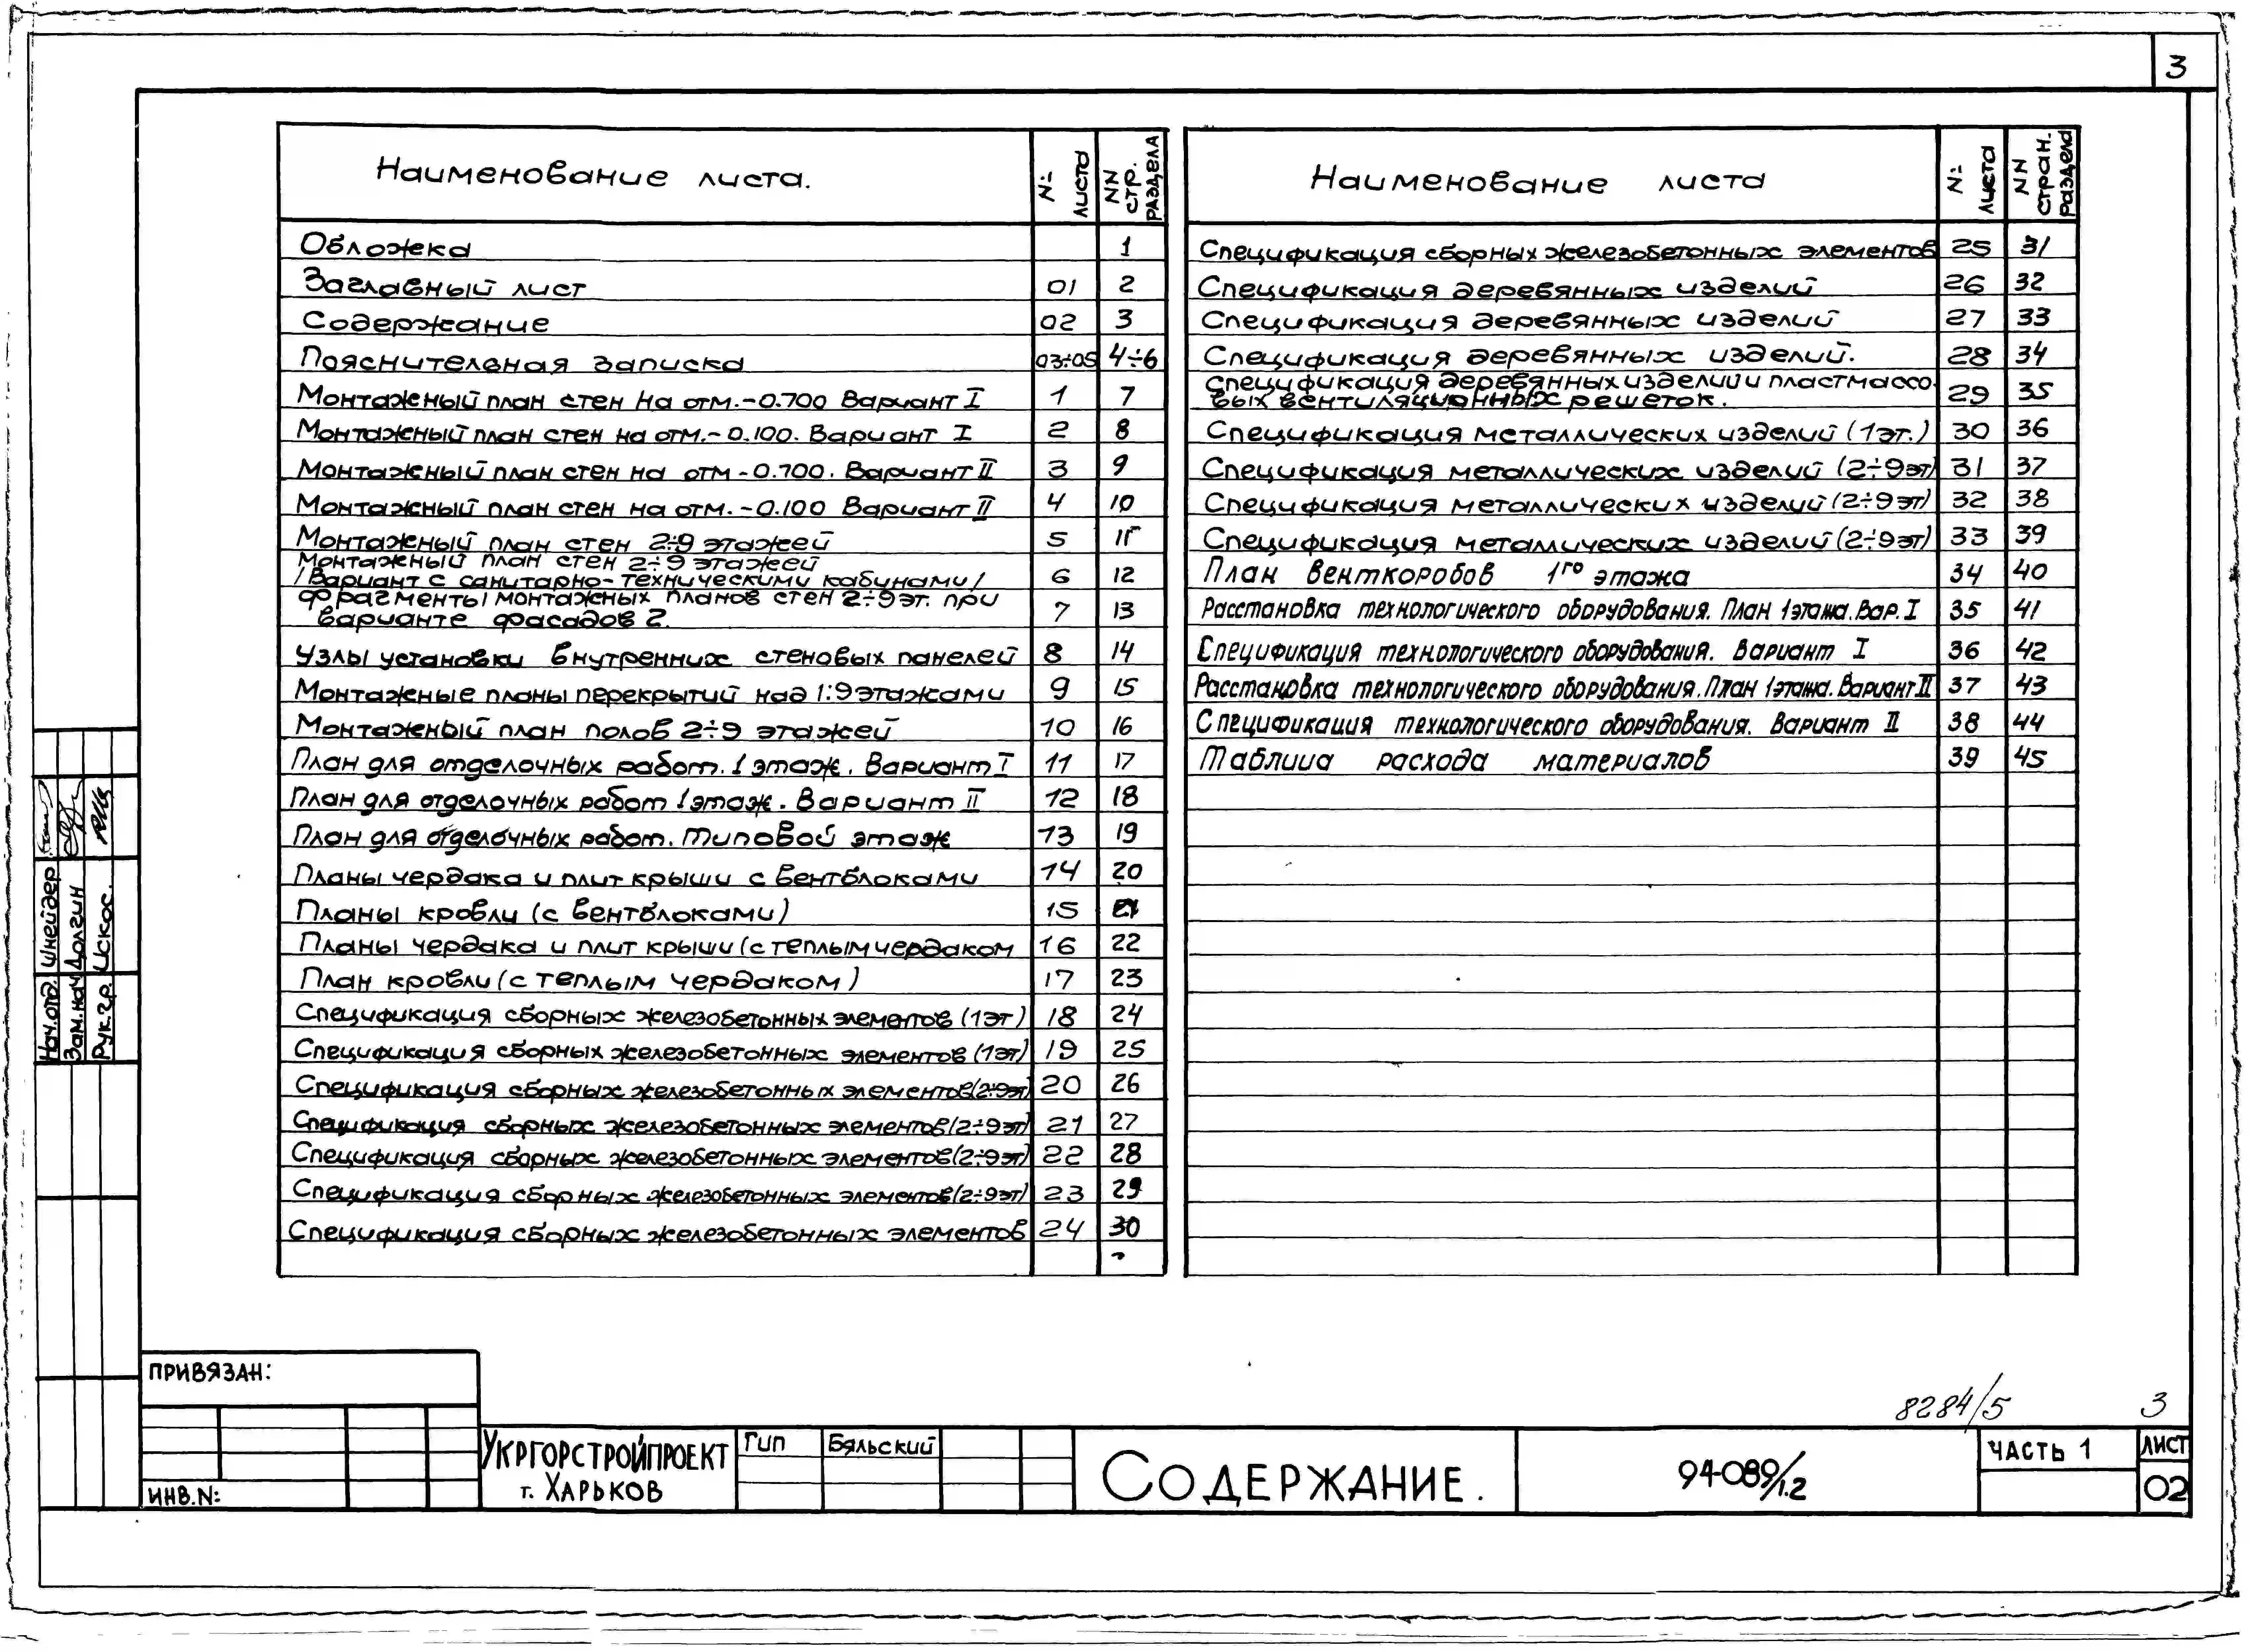 3
Наименование листа. № листа NN стр. раздела
Обложка 1
Заглавный лист 01 2
Содержание 02 3
Пояснительная записка 03÷05 4÷6
Монтажный план стен на отм.-0.700 Вариант I 1 7
Монтажный план стен на отм.-0.100. Вариант I 2 8
Монтажный план стен на отм -0.700. Вариант II 3 9
Монтажный план стен на отм. -0.100 Вариант II 4 10
Монтажный план стен 2÷9 этажей 5 11
Монтажный план стен 2÷9 этажей
/Вариант с санитарно-техническими кабинами/ 6 12
Фрагменты монтажных планов стен 2÷9 эт. при
варианте фасадов 2. 7 13
Узлы установки внутренних стеновых панелей 8 14
Монтажные планы перекрытий над 1÷9 этажами 9 15
Монтажный план полов 2÷9 этажей 10 16
План для отделочных работ. 1 этаж. Вариант I 11 17
План для отделочных работ 1 этаж. Вариант II 12 18
План для отделочных работ. Типовой этаж 13 19
Планы чердака и плит крыши с вентблоками 14 20
Планы кровли (с вентблоками) 15 21
Планы чердака и плит крыши (с теплым чердаком 16 22
План кровли (с теплым чердаком) 17 23
Спецификация сборных железобетонных элементов (1эт) 18 24
Спецификация сборных железобетонных элементов (1эт) 19 25
Спецификация сборных железобетонных элементов (2÷9эт) 20 26
Спецификация сборных железобетонных элементов (2÷9эт) 21 27
Спецификация сборных железобетонных элементов (2÷9эт) 22 28
Спецификация сборных железобетонных элементов (2÷9эт) 23 29
Спецификация сборных железобетонных элементов 24 30
Наименование листа № листа NN стран. раздела
Спецификация сборных железобетонных элементов 25 31
Спецификация деревянных изделий 26 32
Спецификация деревянных изделий 27 33
Спецификация деревянных изделий. 28 34
Спецификация деревянных изделий и пластмассо-
вых вентиляционных решеток. 29 35
Спецификация металлических изделий (1эт.) 30 36
Спецификация металлических изделий (2÷9эт) 31 37
Спецификация металлических изделий (2÷9эт) 32 38
Спецификация металлических изделий (2÷9эт) 33 39
План венткоробов 1го этажа 34 40
Расстановка технологического оборудования. План 1 этажа. Вар. I 35 41
Спецификация технологического оборудования. Вариант I 36 42
Расстановка технологического оборудования. План 1 этажа. Вариант II 37 43
Спецификация технологического оборудования. Вариант II 38 44
Таблица расхода материалов 39 45
Нач.отд. Шнейдер
Зам.нач Долгин
Рук.гр. Искос.
ПРИВЯЗАН:
ИНВ.N:
8284/5 3
УКРГОРСТРОЙПРОЕКТ
г. ХАРЬКОВ
Гип Бяльский
СОДЕРЖАНИЕ.
94-089/1.2
ЧАСТЬ 1
ЛИСТ
02